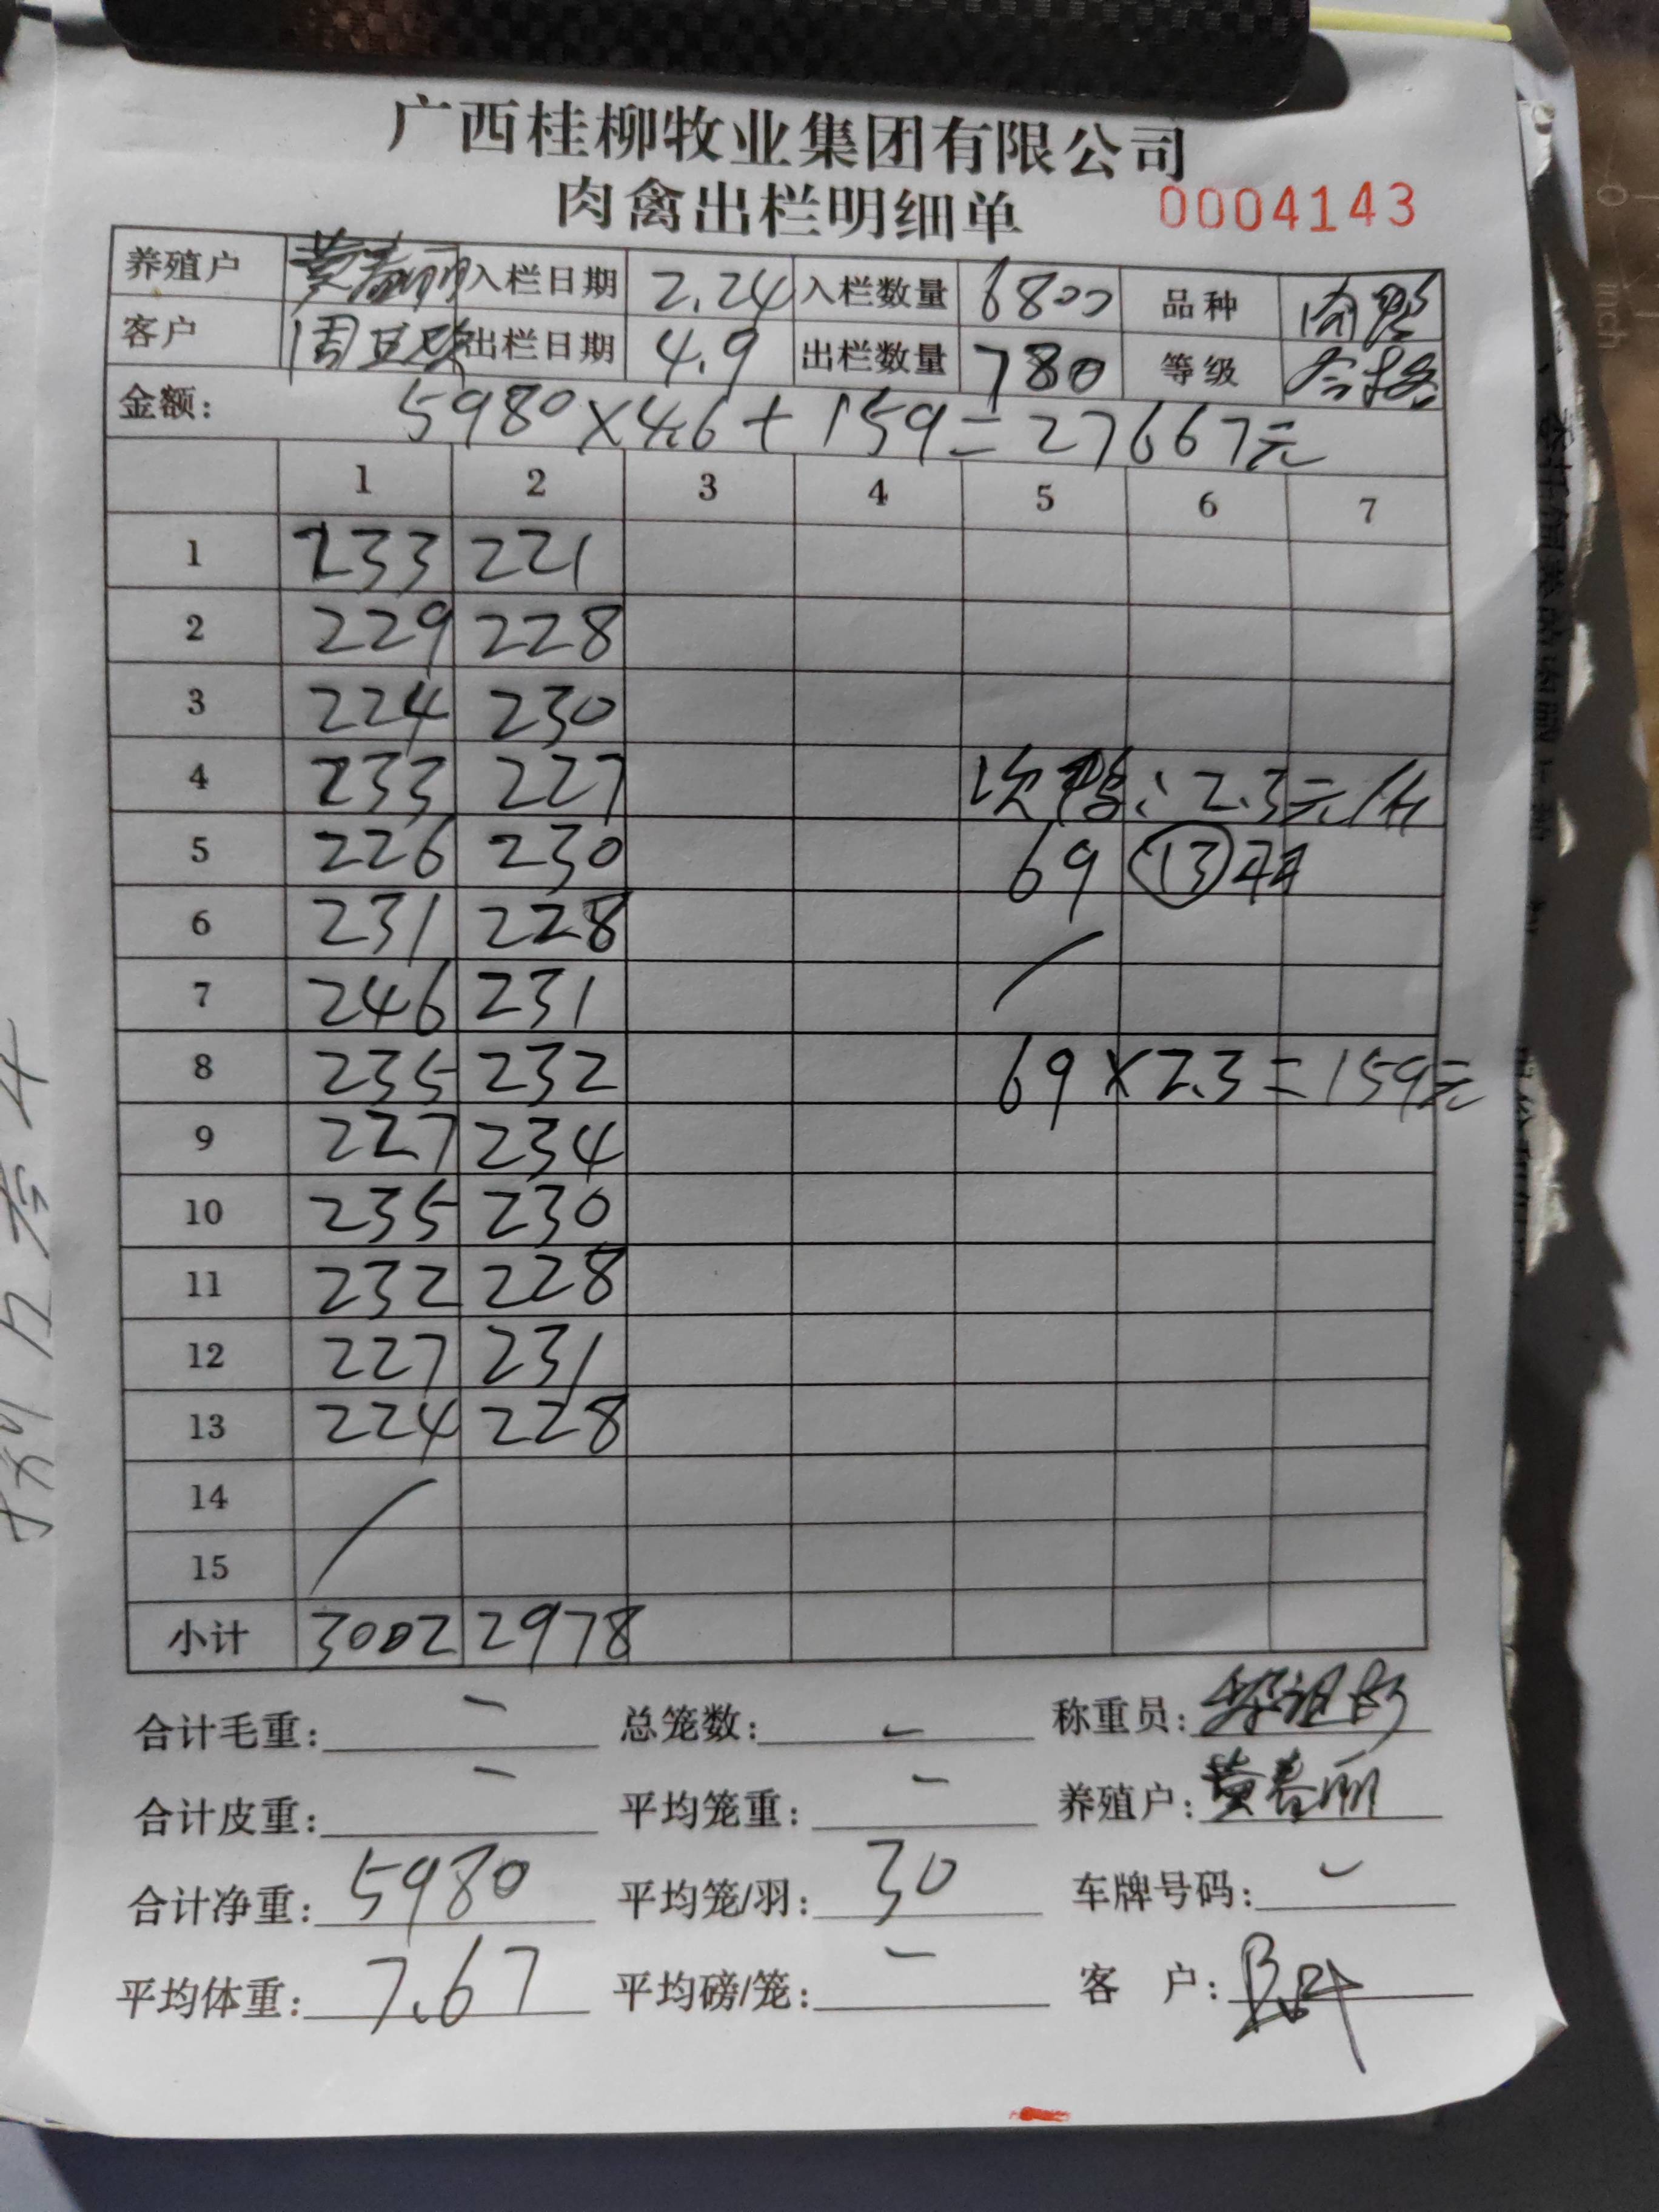 广西桂柳牧业集团有限公司
肉禽出栏明细单 0004143
养殖户 黄春丽 入栏日期 2.24 入栏数量 6800 品种 肉鸭
客户 周 出栏日期 4.9 出栏数量 780 等级 合格
金额: 5980×4.6+159=27667元
1 2 3 4 5 6 7
1 233 221
2 229 228
3 224 230
4 233 227 次鸭:2.3元/斤
5 226 230 69 13羽
6 231 228
7 246 231
8 235 232 69×2.3=159元
9 227 234
10 235 230
11 232 228
12 227 231
13 224 228
14
15
小计 3002 2978
合计毛重: 总笼数: 称重员:
合计皮重: 平均笼重: 养殖户: 黄春丽
合计净重: 5980 平均笼/羽: 30 车牌号码:
平均体重: 7.67 平均磅/笼: 客 户: